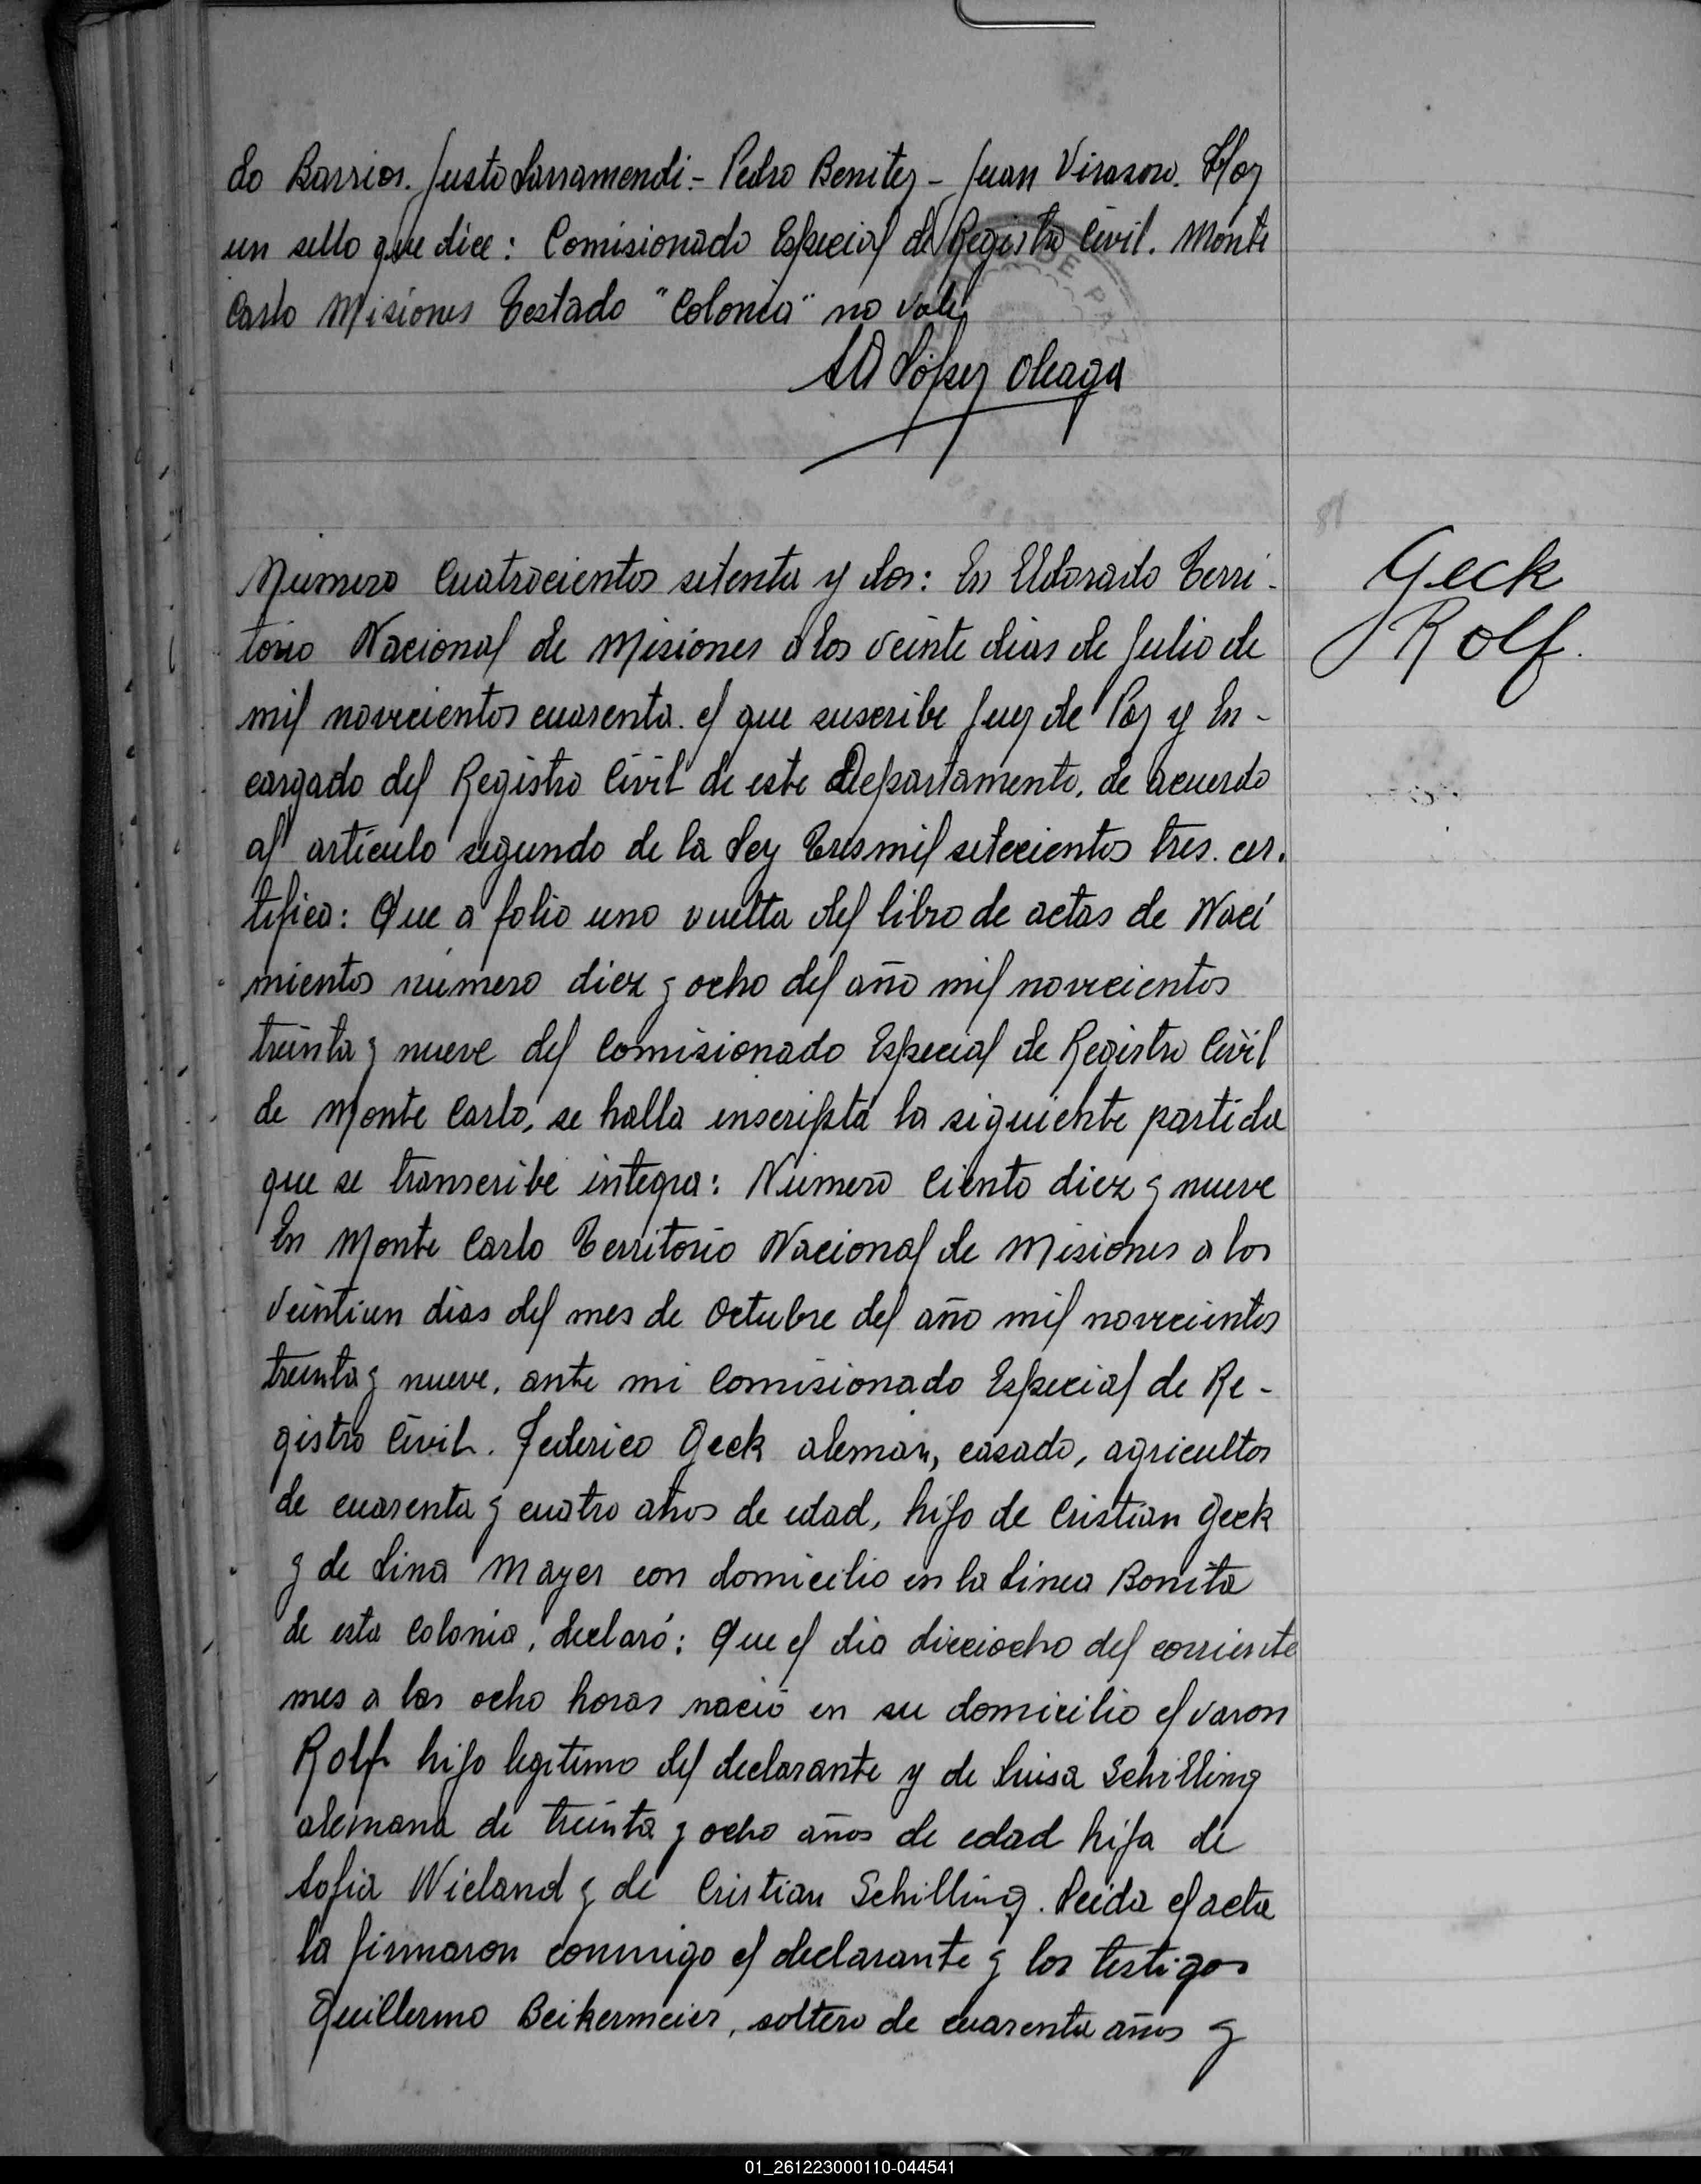 do Barrios. Justo Larramendi.- Pedro Benitez - Juan Virasoro. Hay
un sello que dice: Comisionado Especial de Registro Civil. Monte
Carlo Misiones Testado "Colonia" no vale
López Oleaga
Número Cuatrocientos setenta y dos: En Eldorado Terri-
torio Nacional de Misiones a los veinte dias de Julio de
mil novecientos cuarenta. el que suscribe Juez de Paz y En-
cargado del Registro Civil de este Departamento, de acuerdo
al artículo segundo de la Ley Tresmil setecientos tres. cer.
tifica: Que a folio uno vuelta del libro de actas de Naci
mientos número diez y ocho del año mil novecientos
treinta y nueve del Comisionado Especial de Registro Civil
de Monte Carlo, se halla inscripta la siguiente partida
que se transcribe integra: Número Ciento diez y nueve
En Monte Carlo Territorio Nacional de Misiones a los
veintiun dias del mes de Octubre del año mil novecientos
treinta y nueve, ante mi Comisionado Especial de Re-
gistro Civil. Federico Geck aleman, casado, agricultor
de cuarenta y cuatro años de edad, hijo de Cristian Geck
y de Lina Mayer con domicilio en la Linea Bonita
de esta Colonia, declaró: Que el dia dieciocho del corriente
mes a las ocho horas nació en su domicilio el varon
Rolf hijo legitimo del declarante y de Luisa Schilling
alemana de treinta y ocho años de edad hija de
Sofia Wieland y de Cristian Schilling. Leida el acta
la firmaron conmigo el declarante y los testigos
Guillermo Beikermeier, soltero de cuarenta años y
Geck
Rolf.
01_261223000110-044541